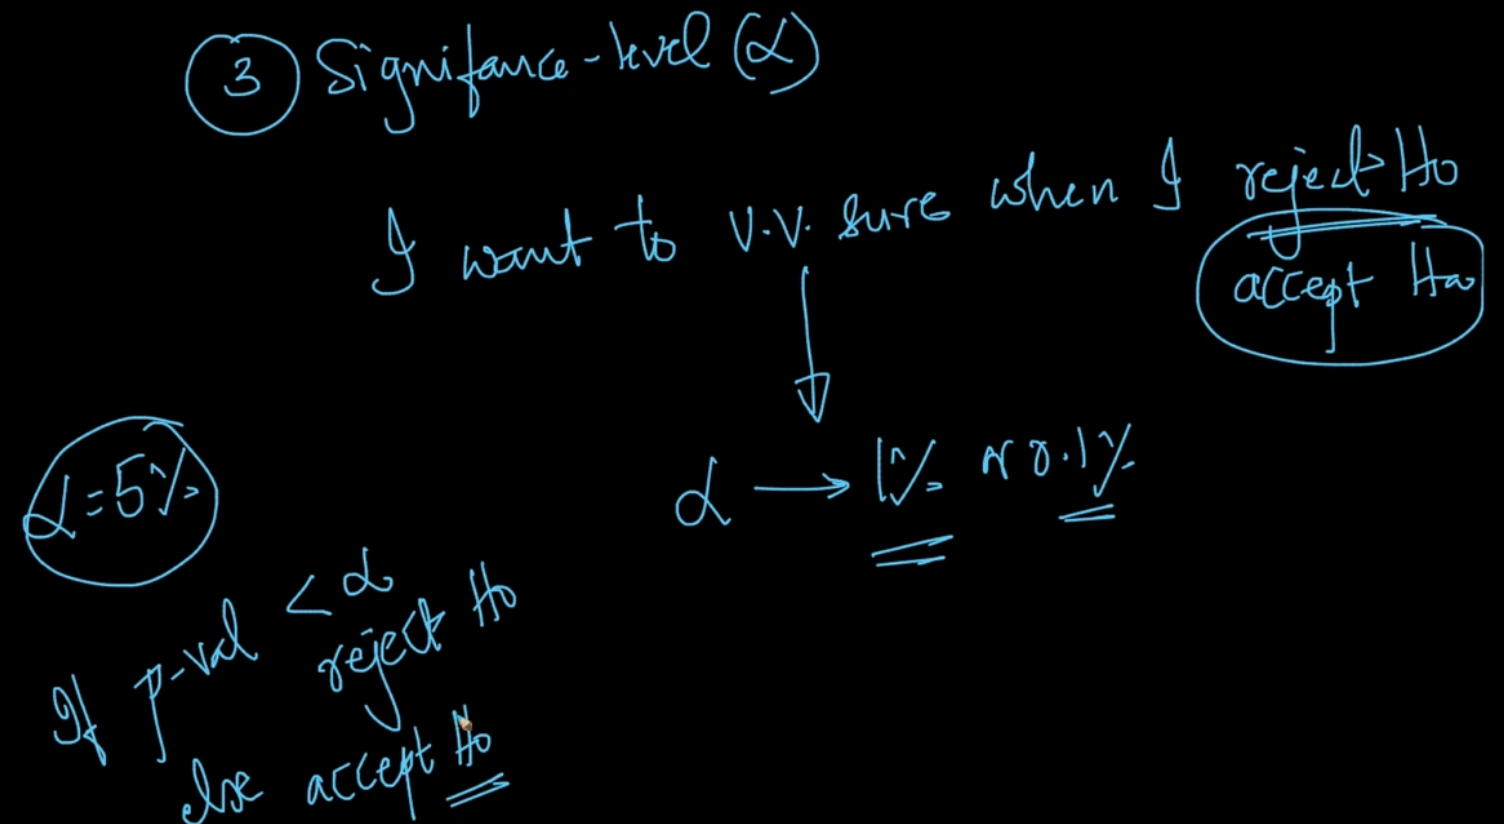 3 Signifance-level (α)
I want to v.v. sure when I reject Ho
accept Ha
α → 1% or 0.1%
α = 5%
If p-val < α
reject Ho
else accept Ho